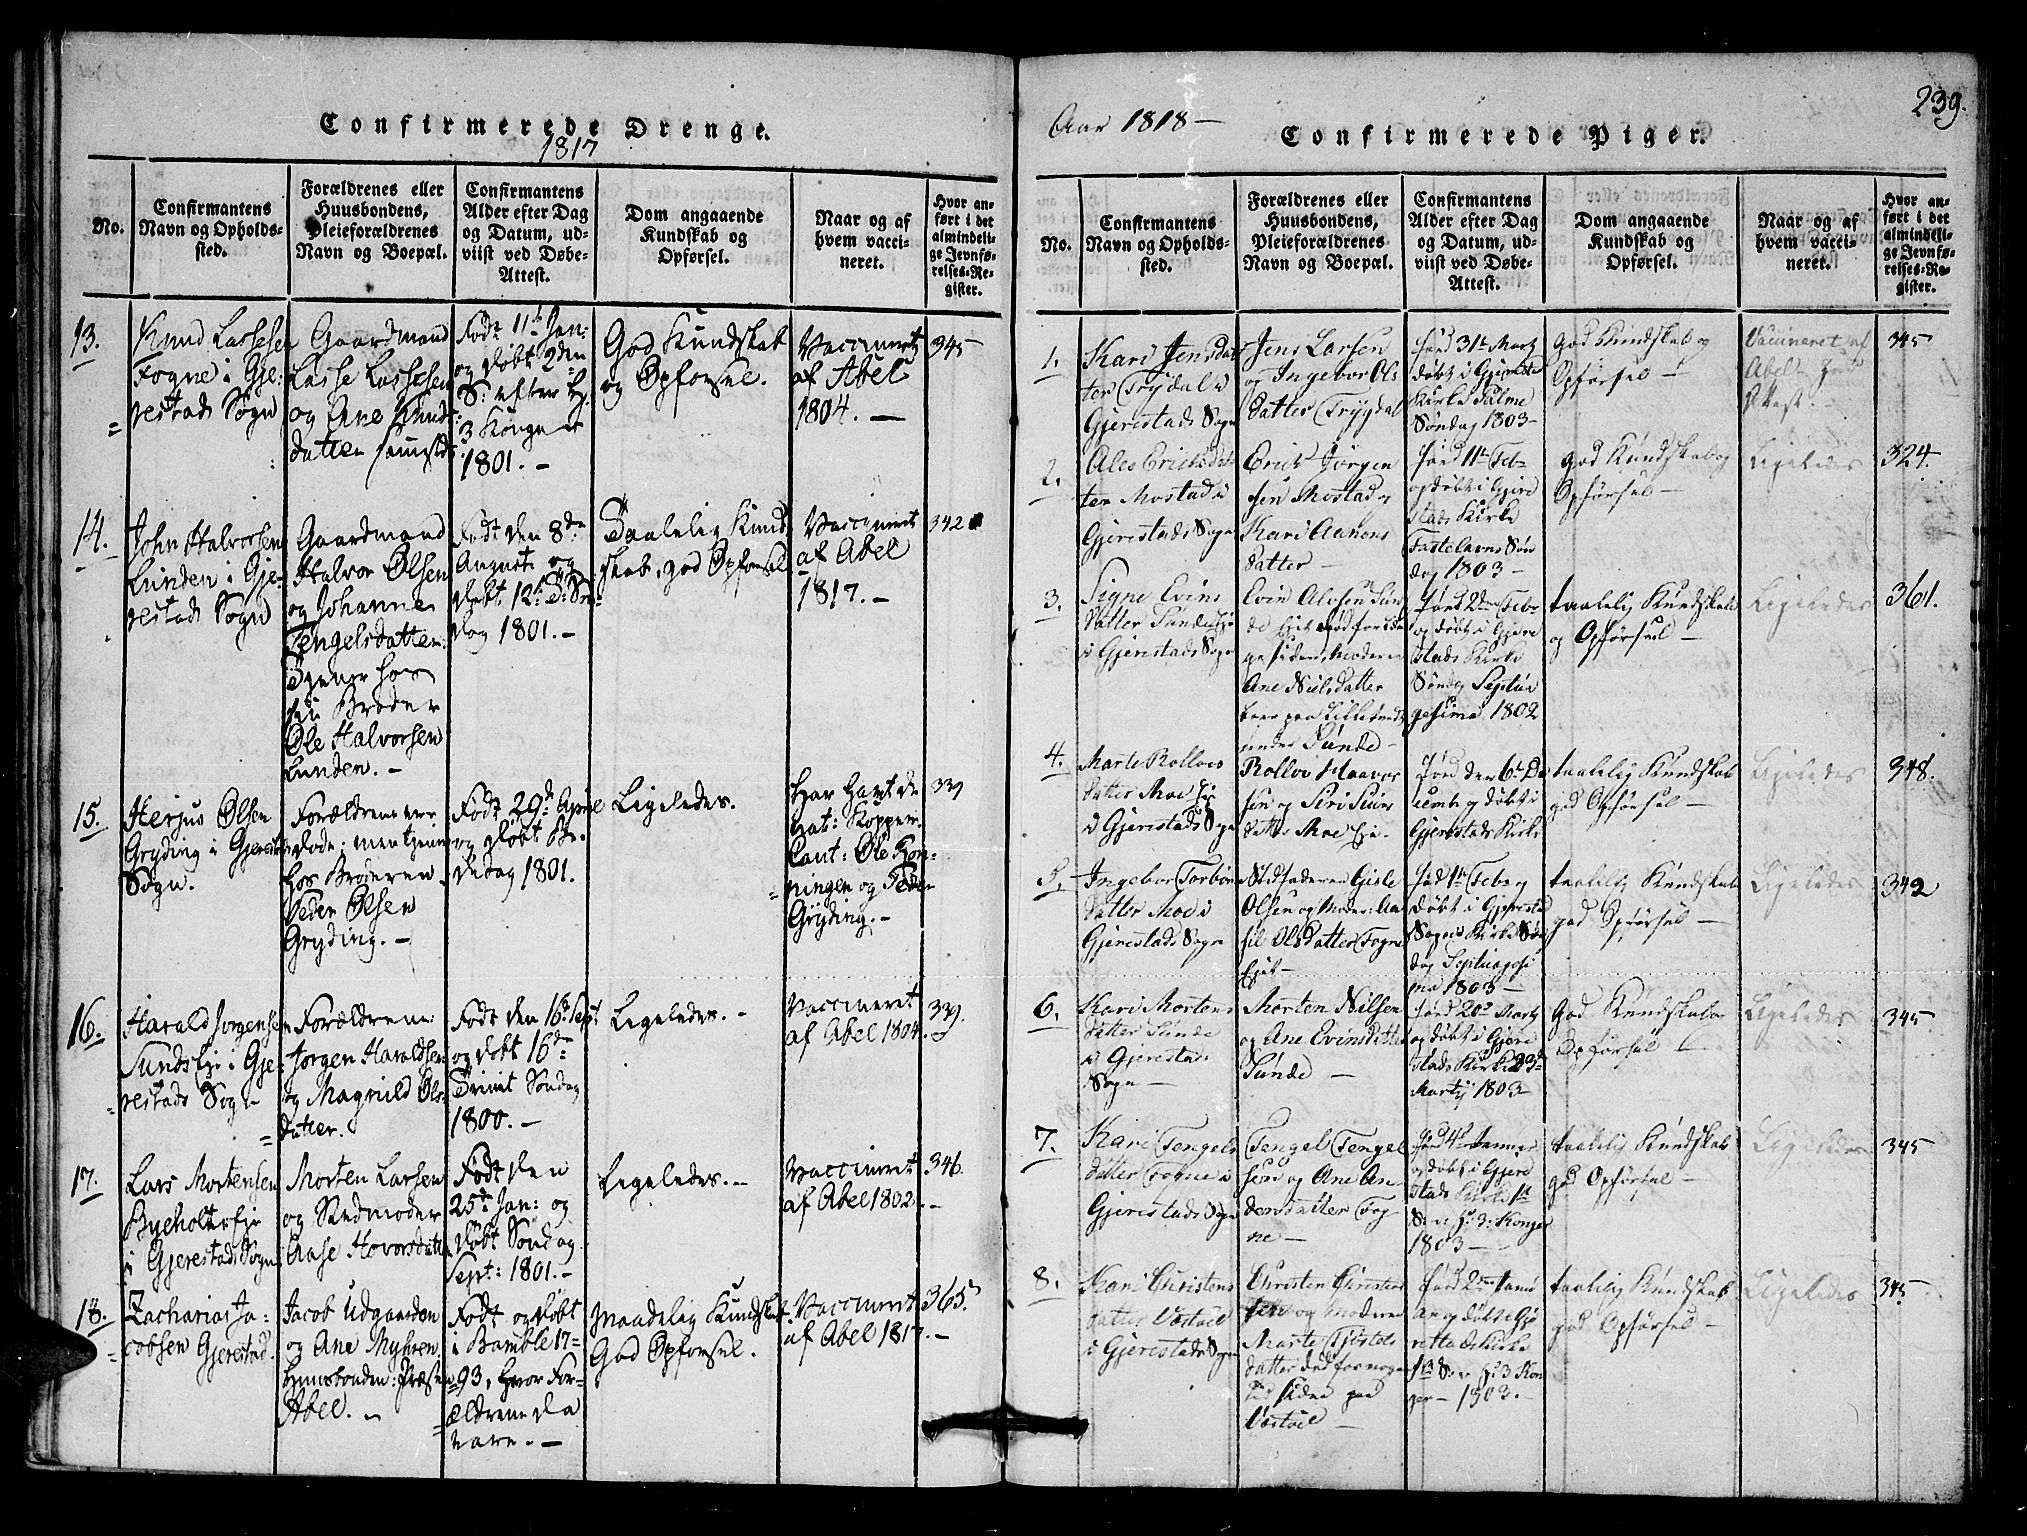 239.
Confirmerede Drenge.
1817
No.
Confirmantens
Navn og Opholds-
sted.
Forældrenes eller
Huusbondens,
Pleieforældrenes
Navn og Boepæl.
Confirmantens
Alder efter Dag
og Datum, ud-
viist ved Døbe-
Attest.
Dom angaaende
Kundskab og
Opførsel.
Naar og af
hvem vacci-
neret.
Hvor an-
ført i det
almindeli-
ge Jevnfø-
relses-Re-
gister.
13.
Knud Lassesen
Fogne i Gje-
restads Sogn
Gaardmand
Lasse Lassesen
og Ane Knuds
datter samstd:
Født 11te Jan:
og døbt 2den
S: efter H.
3 Konger
1801. -
God Kundskab
og Opførsel.
Vaccineret
af Abel
1804. -
345
14.
John Halvorsen
Lunden i Gje-
restads Sogn
Gaardmand
Halvor Olsen
og Johanne
Tengelsdatter:
Tjener hos
sin Broder
Ole Halvorsen
Lunden. -
Født den 8de
August og
døbt 12te S: Søn-
dag 1801. -
Taalelig Kund-
skab, god Opførsel
Vaccineret
af Abel
1817. -
342
15.
Herjus Olsen
Gryding i Gjerestads
Sogn.
Forældrene ere
døde; men tjener
hos Broderen
Peder Olsen
Gryding. -
Født 29de April
og døbt Be-
dedag 1801.
Ligeledes.
Har havt de
nat: Kopper.
Cant: Ole Kon-
ningen og Peder
Gryding. -
339
16.
Harald Jørgensen
Sunds Eje i Gje-
restads Sogn
Forældrene:
Jørgen Haraldsen
og Magnild Ols-
datter.
Født den 16de Sept
og døbt 16de
Trinit Søndag
1800. -
Ligeledes. -
Vaccineret
af Abel 1804.
339.
17.
Lars Mortensen
Byeholts Eje
i Gjerestads Sogn
Morten Larsen
og Stedmoder
Aase Hovorsdatter
Født den
25de Jan: og
døbt Søndag
Sept: 1801. -
Ligeledes. -
Vaccineret
af Abel 1802.
346.
18.
Zacharias Ja-
cobsen Gjerestad.
Jacob Udgaarden
og Ane Myhren.
Huusbonden: Præsten
Abel. -
Født og døbt
i Bamble 17-
93, hvor For-
ældrene da
vare. -
Maadelig Kundskab
God Opførsel.
Vaccineret
af Abel 1817. -
365.
Aar 1818 -
Confirmerede Piger.
No.
Confirmantens
Navn og Opholds-
sted.
Forældrenes eller
Huusbondens,
Pleieforældrenes
Navn og Boepæl.
Confirmantens
Alder efter Dag
og Datum, ud-
viist ved Døbe-
Attest.
Dom angaaende
Kundskab og
Opførsel.
Naar og af
hvem vacci-
neret.
Hvor an-
ført i det
almindeli-
ge Jevnfø-
relses-Re-
gister.
1.
Kari Jensdat
ter Trydal i
Gjerestads Sogn
Jens Larsen
og Ingebor Ols
datter Trygdal
Fød 31te Marts
døbt i Gjerestads
Kirke Palme
Søndag 1803 -
God Kundskab og
Opførsel -
Vaccineret af
Abel
Attest. -
345
2.
Ales Ericsdat
ter Mostad i
Gjerestads Sogn
Erick Jørgen
sen Mostad og
Kari Aanons
datter -
Fød 11te Feb
og døbt i Gjere
stads Kirke
Fastelavns Søn
dag 1803 -
God Kundskab og
Opførsel -
Ligeledes
324.
3.
Signe Evins
datter Sunds Eje
i Gjerestads Sogn
Evin Alvsen Sun
Moderen
Ane Nielsdatter
under Sunde -
Fød 2den Feb
og døbt i Gjere
stads Kirke
Søndag Septua
gesima 1802
taalelig Kundskab
og Opførsel -
Ligeledes
361.
4.
Marte Rollovs
datter Moe Eje
i Gjerestads Sogn
Rollov Haavor
sen og Siri
datter Moe Eje -
Fød den 6te De
cemb og døbt i
Gjerestads Kirke
taalelig Kundskab
god Opførsel -
Ligeledes
348.
5.
Ingebor Torbørns
datter Moe i
Gjerestads Sogn
Stedfaderen Gisle
Olsen og Moder: Aa
sil Olsdatter Fogne
Ejet -
Fød 1te Feb og
døbt i Gjerestad
Sogns Kirke Søn
dag Septuagesi
ma 1803 -
taalelig Kundskab
god Opførsel -
Ligeledes
342
6.
Kari Mortens
datter Sunde
i Gjerestads
Sogn -
Morten Nilsen
og Ane Evinsdatter
Sunde -
Fød 20de Marts
og døbt i Gjere
stads Kirke 23de
Martij 1803 -
God Kundskab og
Opførsel -
Ligeledes
345
7.
Kari Tengels
datter Fogne i
Gjerestads Sogn
Tengel Tengel
sen og Ane An
dersdatter Fog
ne -
Fød 4de Januar
og døbt i Gjere
stads Kirke 1te
S. e. H: 3: Konger
1803 -
taalelig Kundskab
god Opførsel -
Ligeledes
345
8.
Kari Christens
datter Vestøl
i Gjerestads Sogn
Christen Christen
sen og Moderen
Marte Tjøstels
datter død for nogen
tid siden paa
Vestøl -
Fød 2den Janu
ar og døbt i Gje
restads Kirke
1te S. e. H: 3 Kon
ger - 1803. -
taalelig Kundskab
god Opførsel -
Ligeledes
345